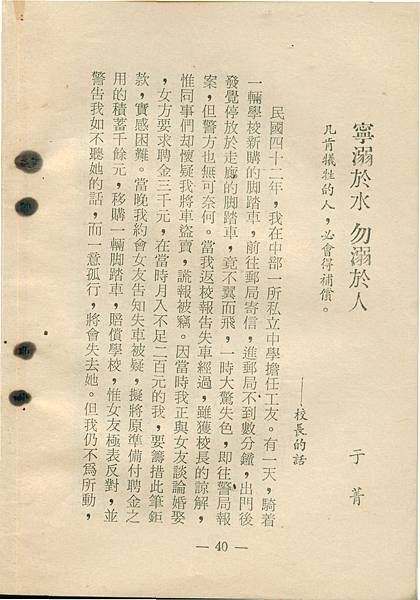 寧溺於水 勿溺於人
于菁
凡肯犧牲的人，必會得補償。
——校長的話
民國四十二年，我在中部一所私立中學擔任工友。有一天，騎着
一輛學校新購的脚踏車，前往郵局寄信，進郵局不到數分鐘，出門後
發覺停放於走廊的脚踏車，竟不翼而飛，一時大驚失色，即往警局報
案，但警方也無可奈何。當我返校報告失車經過，雖獲校長的諒解，
惟同事們却懷疑我將車盜賣，謊報被竊。因當時我正與女友談論婚娶
，女方要求聘金三千元，在當時月入不足二百元的我，要籌措此筆鉅
款，實感困難。當晚我約會女友告知失車被疑，擬將原準備付聘金之
用的積蓄千餘元，移購一輛脚踏車，賠償學校，惟女友極表反對，並
警告我如不聽她的話，而一意孤行，將會失去她。但我仍不爲所動，
— 40 —